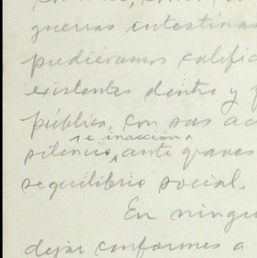 guerras intestinas
pudiéramos calific
existentes dentro y f
pública, con sus ac
e inacción
silencio, ante graves
sequilibrio social.
En ningu
dejar conformes a